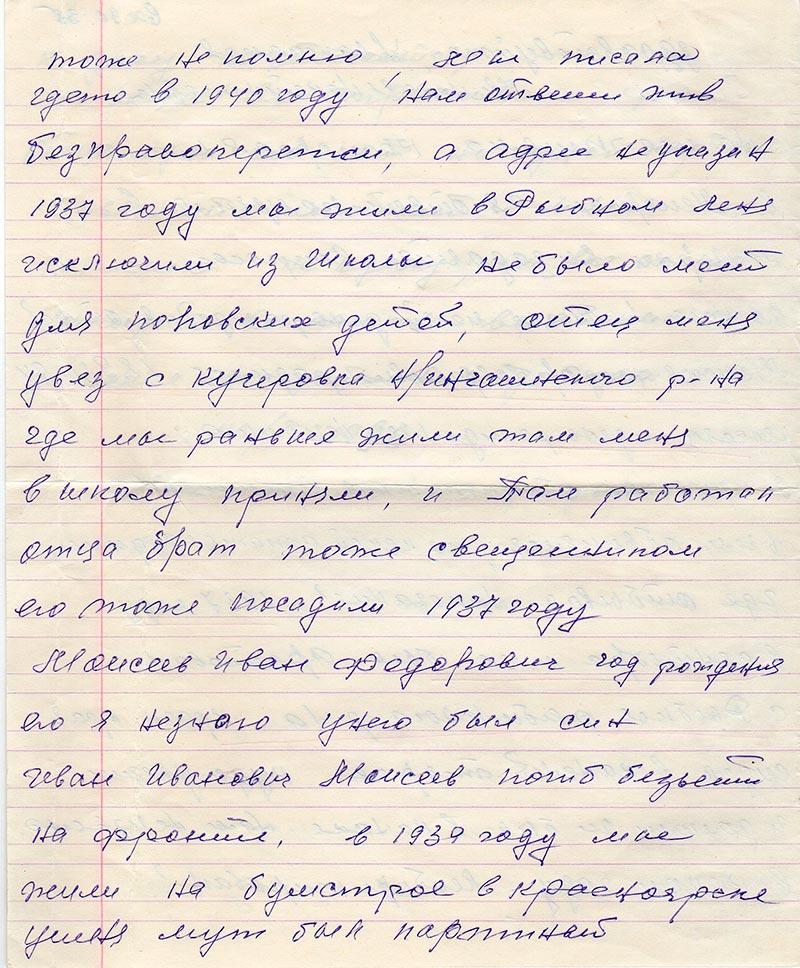 тоже не помню, чем писала
гдето в 1940 году нам ответили жив
без праволерепиской, а адрес неуказан
1937 году мы жили в Рыбном меня
исключили из школы небыло мест
для поповских детей, отец меня
увез с кучеровка Н/ингашского р-на
где мы раньше жили там меня
в школу приняли, и там работал
отца брат тоже свещенником
его тоже посадили 1937 году
Моисеев Иван Федорович год рождения
его я незнаю унего был син
Иван Иванович Моисеев погиб безвести
на фронте, в 1939 году мы
жили на бумстрое в красноярске
уменя муж был партиный